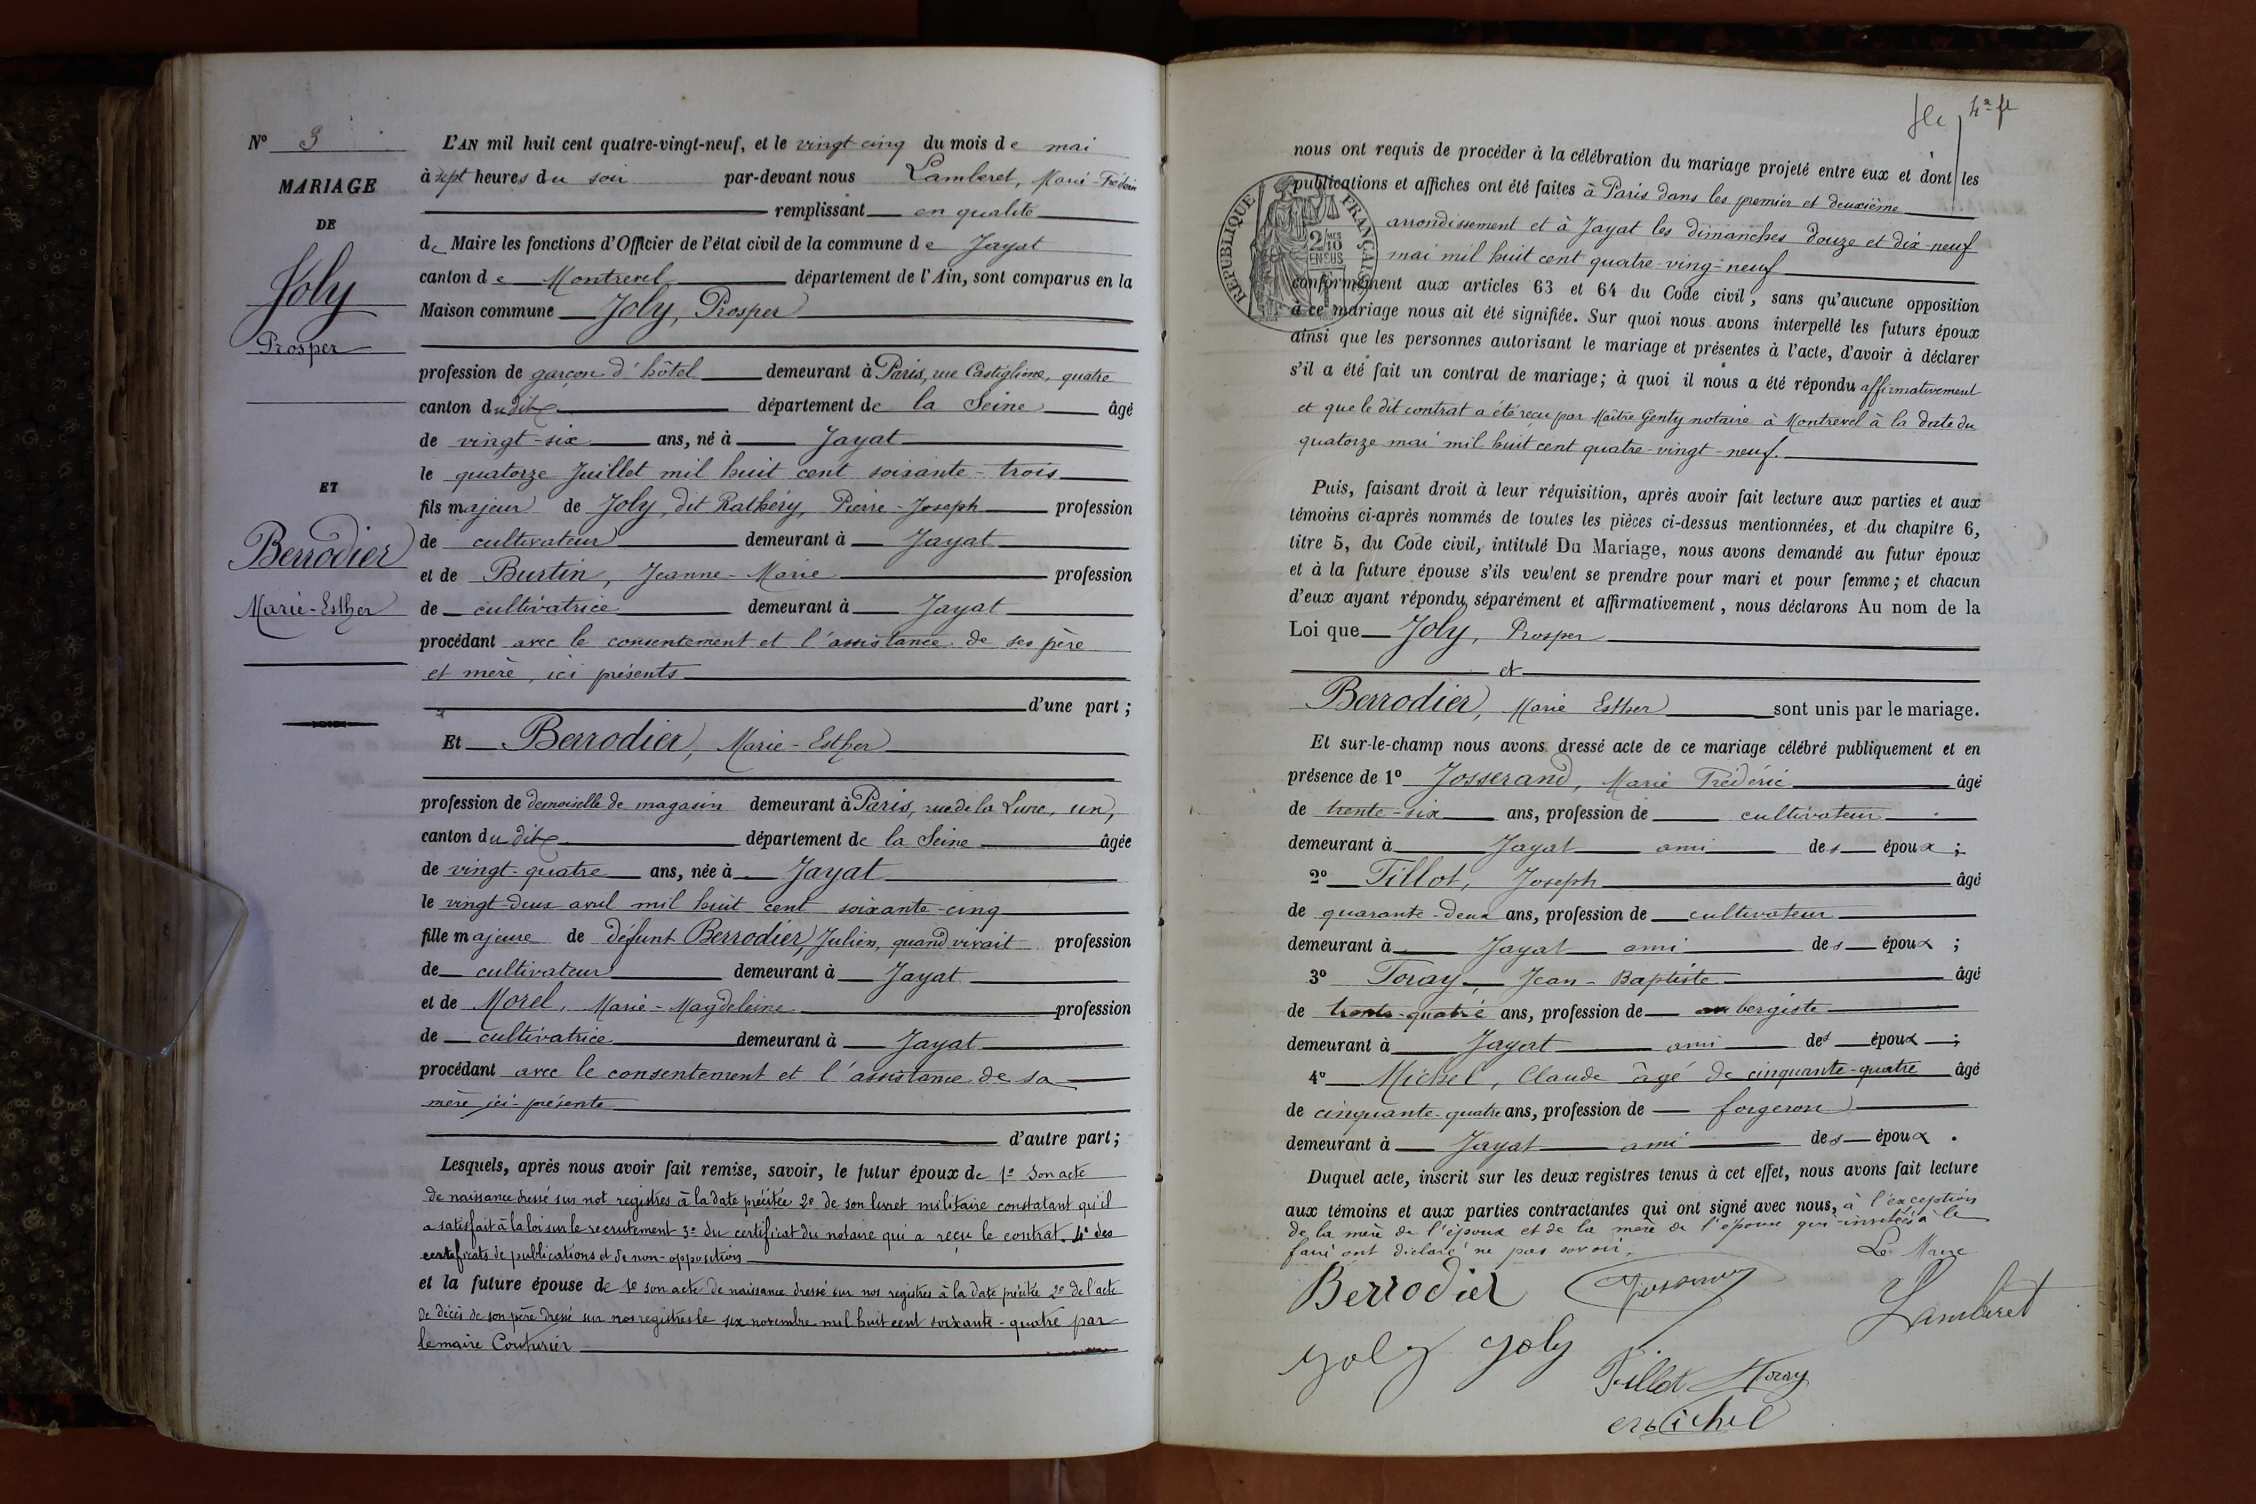 N° 3
MARIAGE
DE
Joly
Prosper
ET
Berrodier
Marie-Esther
L'AN mil huit cent quatre-vingt-neuf, et le vingt-cinq du mois de mai
à sept heures du soir par-devant nous Lamberet, Marie-Frédéric
remplissant en qualité
de Maire les fonctions d'Officier de l'état civil de la commune de Jayat
canton de Montrevel département de l'Ain, sont comparus en la
Maison commune Joly, Prosper
profession de garçon d'hôtel demeurant à Paris, rue Castiglione, quatre
canton du dit département de la Seine âgé
de vingt-six ans, né à Jayat
le quatorze Juillet mil huit cent soixante-trois
fils majeur de Joly, dit Rathéry, Pierre-Joseph profession
de cultivateur demeurant à Jayat
et de Burtin, Jeanne-Marie profession
de cultivatrice demeurant à Jayat
procédant avec le consentement et l'assistance de ses père
et mère, ici présents
d'une part ;
Et Berrodier, Marie-Esther
profession de demoiselle de magasin demeurant à Paris, rue de la Lune, un,
canton du dit département de la Seine âgée
de vingt-quatre ans, née à Jayat
le vingt-deux avril mil huit cent soixante-cinq
fille majeure de défunt Berrodier, Julien, quand vivait profession
de cultivateur demeurant à Jayat
et de Morel, Marie-Magdeleine profession
de cultivatrice demeurant à Jayat
procédant avec le consentement et l'assistance de sa
mère ici-présente
d'autre part ;
Lesquels, après nous avoir fait remise, savoir, le futur époux de 1° son acte
de naissance dressé sur not registres à la date précitée 2° de son livret militaire constatant qu'il
a satisfait à la loi sur le recrutement 3° du certificat du notaire qui a reçu le contrat. 4° des
certificats de publications et de non-opposition
et la future épouse de 1° son acte de naissance dressé sur nos registres à la date précitée 2° de l'acte
de décès de son père dressé sur nos registres le six novembre mil huit cent soixante-quatre par
le maire Couturier
nous ont requis de procéder à la célébration du mariage projeté entre eux et dont les
publications et affiches ont été faites à Paris dans les premier et deuxième
arrondissement et à Jayat les dimanches douze et dix-neuf
mai mil huit cent quatre-ving-neuf
RÉPUBLIQUE FRANÇAISE
2/10
EN SUS
conformément aux articles 63 et 64 du Code civil, sans qu'aucune opposition
à ce mariage nous ait été signifiée. Sur quoi nous avons interpellé les futurs époux
ainsi que les personnes autorisant le mariage et présentes à l'acte, d'avoir à déclarer
s'il a été fait un contrat de mariage; à quoi il nous a été répondu affirmativement
et que le dit contrat a été reçu par Maître Genty notaire à Montrevel à la date du
quatorze mai mil huit cent quatre-vingt-neuf.
Puis, faisant droit à leur réquisition, après avoir fait lecture aux parties et aux
témoins ci-après nommés de toutes les pièces ci-dessus mentionnées, et du chapitre 6,
titre 5, du Code civil, intitulé Du Mariage, nous avons demandé au futur époux
et à la future épouse s'ils veulent se prendre pour mari et pour femme; et chacun
d'eux ayant répondu séparément et affirmativement, nous déclarons Au nom de la
Loi que Joly, Prosper
et
Berrodier, Marie Esther sont unis par le mariage.
Et sur-le-champ nous avons dressé acte de ce mariage célébré publiquement et en
présence de 1° Josserand, Marie Frédéric âgé
de trente-six ans, profession de cultivateur
demeurant à Jayat ami des époux ;
2° Tillot, Joseph âgé
de quarante-deux ans, profession de cultivateur
demeurant à Jayat ami des époux ;
3° Toray, Jean-Baptiste âgé
de trente-quatre ans, profession de aubergiste
demeurant à Jayat ami des époux ;
4° Michel, Claude âgé de cinquante-quatre âgé
de cinquante-quatre ans, profession de forgeron
demeurant à Jayat ami des époux .
Duquel acte, inscrit sur les deux registres tenus à cet effet, nous avons fait lecture
aux témoins et aux parties contractantes qui ont signé avec nous, à l'exception
de la mère de l'époux et de la mère de l'épouse qui invitées à le
faire ont déclaré ne pas savoir.
Le Maire
Berrodier
Lamberet
Joly Joly
Tillot Toray
Michel